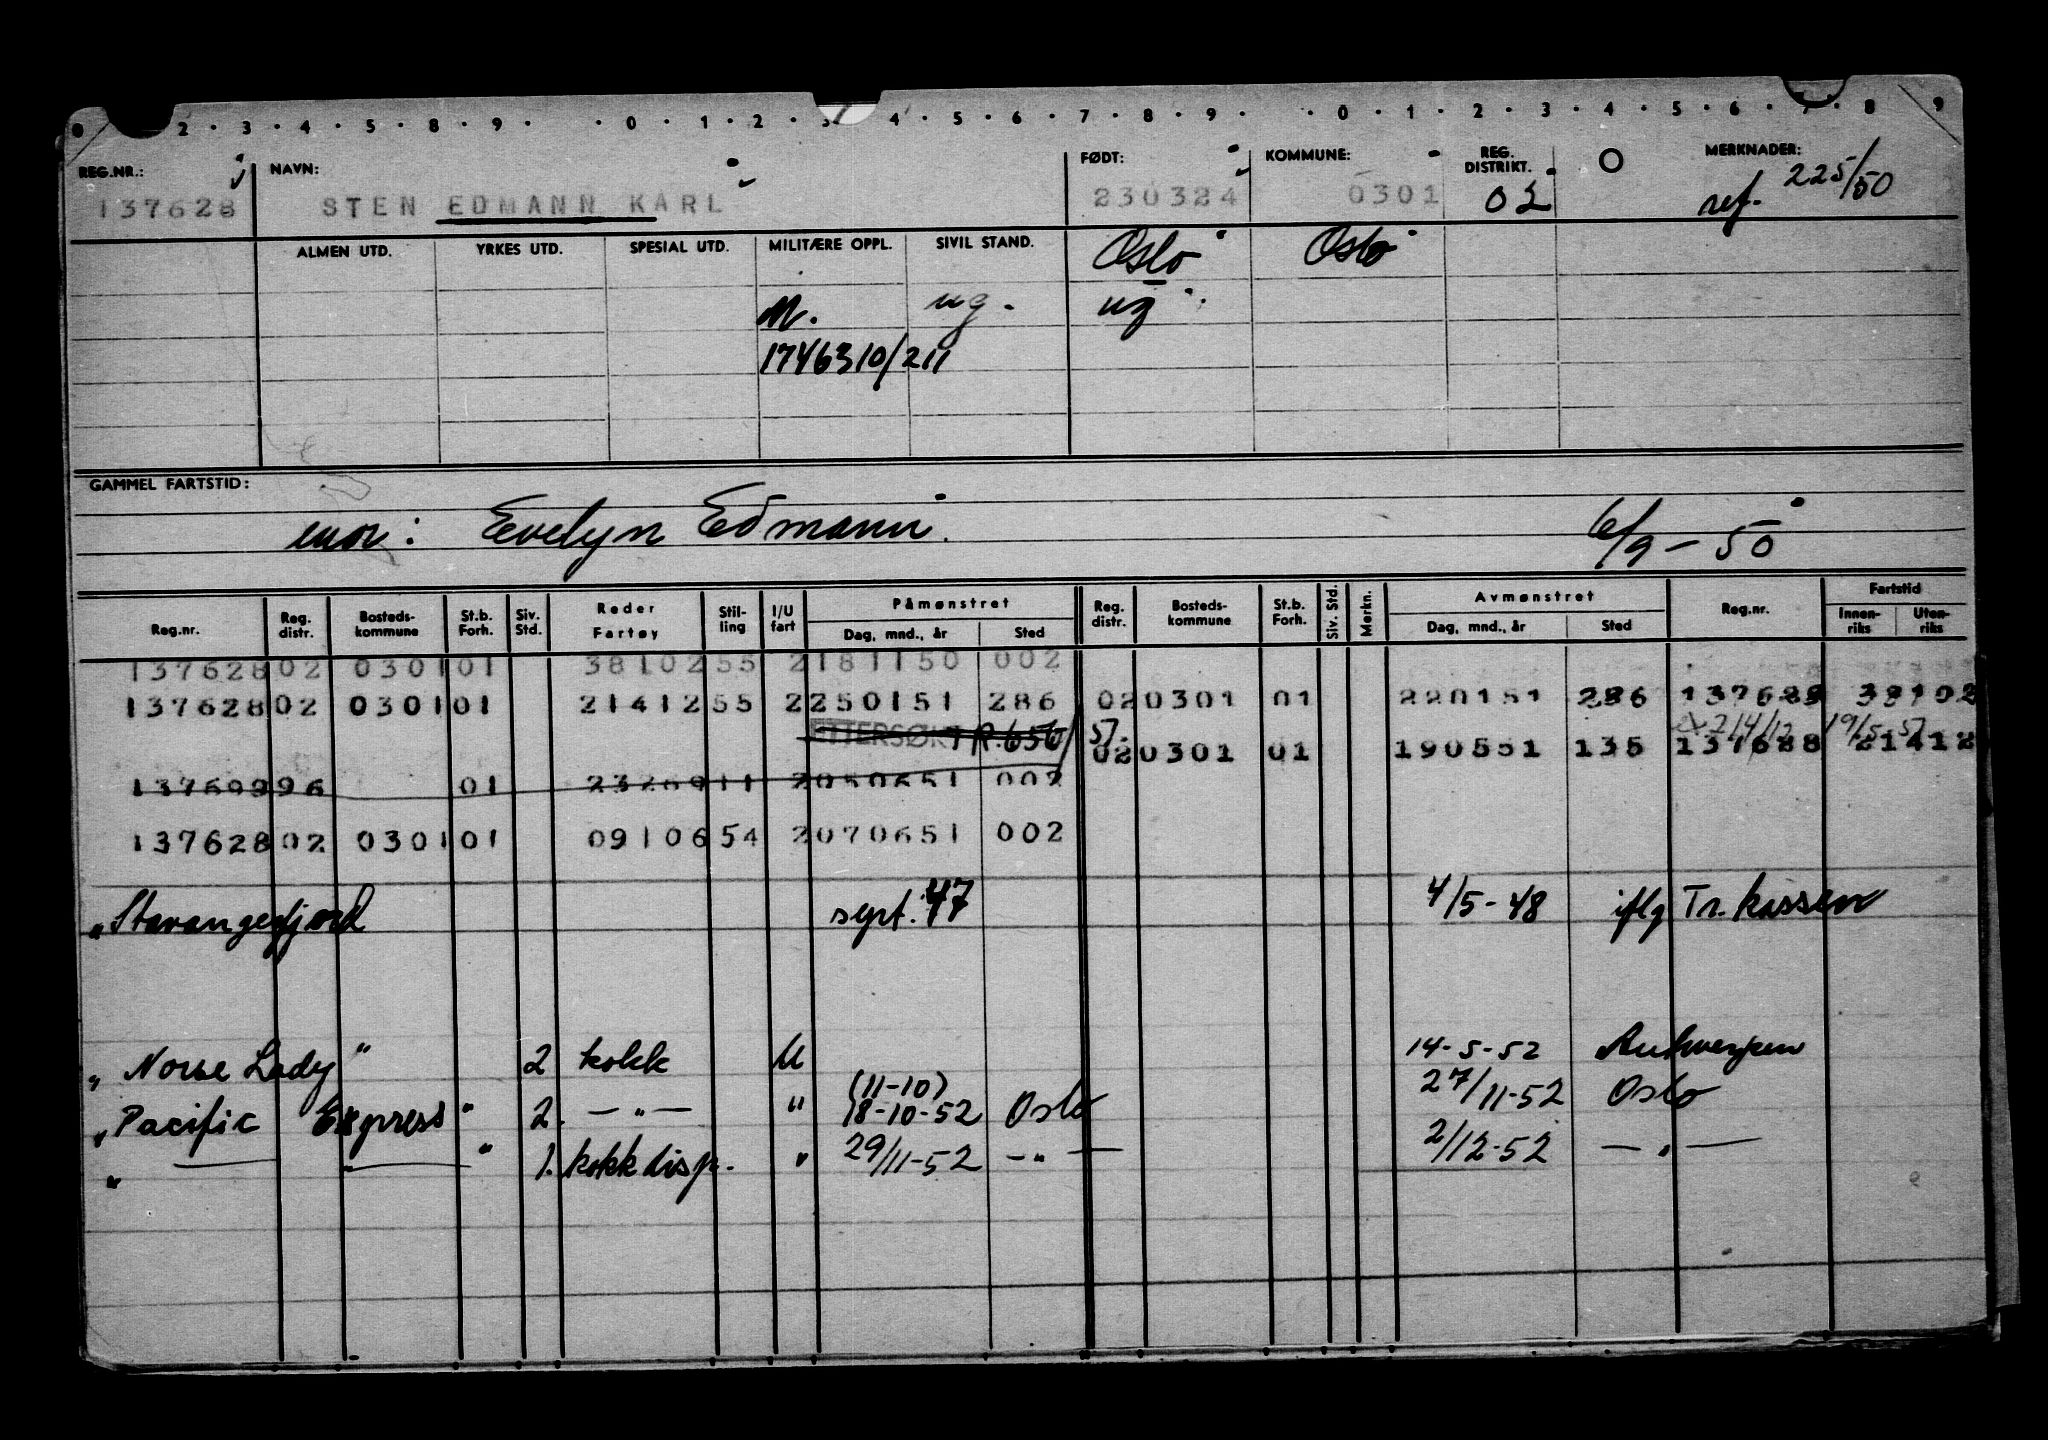 2 · 3 · 4 · 5 · 8 · 9 · · 0 · 1 · 2 · 3 · 4 · 5 · 6 · 7 · 8 · 9 · · 0 · 1 · 2 · 3 · 4 · 5 · 6 · 7 · 8 9
REG.NR.: NAVN: FØDT: KOMMUNE: REG. DISTRIKT. O MERKNADER:
137628 STEN EDMANN KARL 230324 0301 02 ref. 225/50
ALMEN UTD. YRKES UTD. SPESIAL UTD. MILITÆRE OPPL. SIVIL STAND. Oslo Oslo
M. ug. ug
1746310/211
GAMMEL FARTSTID:
mor: Evelyn Edmann. 6/9-50
Reg.nr. Reg. distr. Bosteds-kommune St.b. Forh. Siv. Std. Reder Fartøy Stil-ling I/U fart Påmønstret Dag, mnd., år Sted Reg. distr. Bosteds-kommune St.b. Forh. Siv. Std. Merkn. Avmønstret Dag, mnd., år Sted Reg.nr. Fartstid Innen-riks Uten-riks
137628 02 0301 01 38102 55 2 181150 002
137628 02 0301 01 21412 55 2 250151 286 02 0301 01 220151 286 137628 38102
ETTERSØKT R.656/57. 19/5-57
02 0301 01 190551 135 137628 21412
137699 96 01 23269 11 2 050651 002
137628 02 0301 01 09106 54 2 070651 002
"Stavangerfjord sept. 47 4/5-48 iflg Tr. kassen
"Norse Lady" 2 kokk U 14-5-52 Antwerpen
(11-10)
"Pacific Express" 2. — " — " 18-10-52 Oslo 27/11-52 Oslo
" — " — " 1. kokk disp. " 29/11-52 — " — 2/12-52 — " —